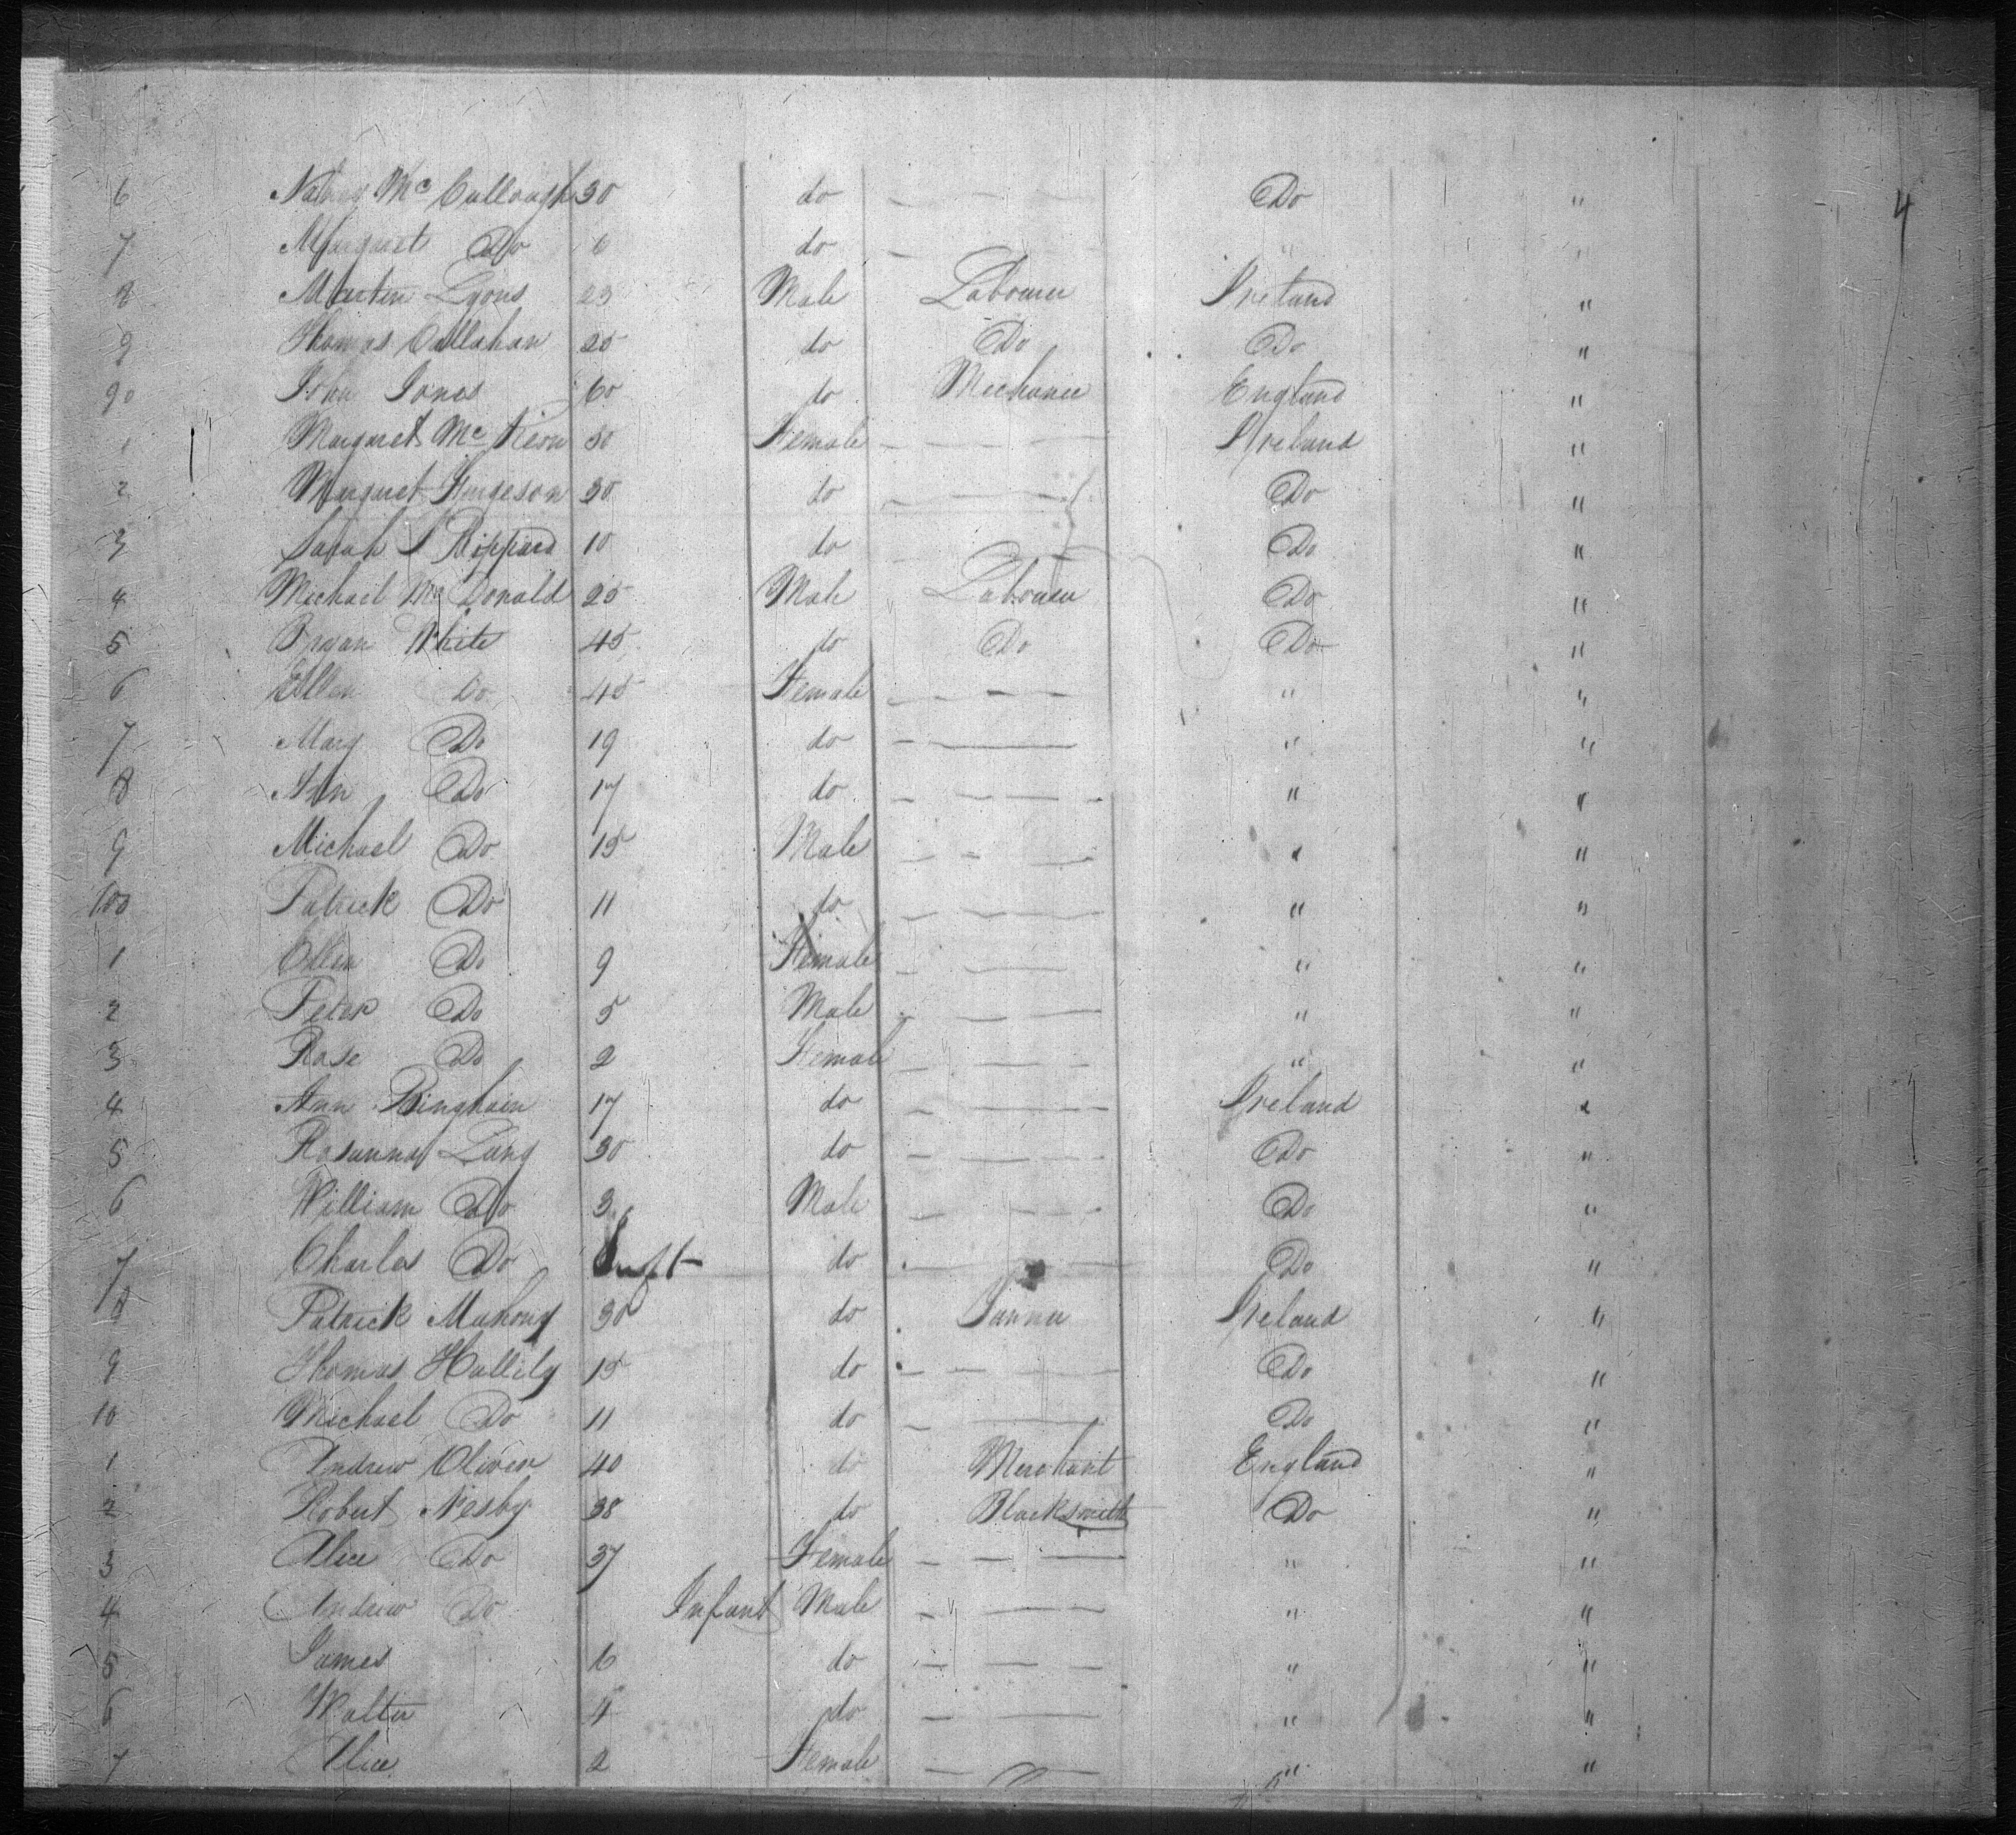 4
6 Nancy Mc Cullough 30 do — — — Do "
7 Margaret Do 6 do — — — " "
8 Martin Lyons 23 Male Labourer Ireland "
9 Thomas Callahan 25 do Do Do "
90 John Jones 60 do Mechanic England "
1 Margaret Mc Keon 30 Female — — — Ireland "
2 Margaret Furgeson 30 do — — — Do "
3 Sarah S Bippard 10 do — — — Do "
4 Michael Mc Donald 25 Male Labourer Do "
5 Bryan White 45 do Do Do "
6 Ellen Do 45 Female — — — " "
7 Mary Do 19 do — — " "
8 Ann Do 17 do — — — — " "
9 Michael Do 15 Male — — — — " "
100 Patrick Do 11 do — — — — " "
1 Ellen Do 9 Female — — — " "
2 Peter Do 5 Male — — — " "
3 Rose Do 2 Female — — — " "
4 Ann Bingham 17 do — — — Ireland "
5 Rosanna Lang 30 do — — — Do "
6 William Do 3 Male — — — Do "
7 Charles Do Inft do — — Do "
8 Patrick Mahony 30 do Ireland "
9 Thomas Hallily 15 do — — — Do "
10 Michael Do 11 do — — Do "
1 Andrew Oliver 40 do Merchant England "
2 Robert Nesby 38 do Blacksmith Do "
3 Alice Do 37 Female — — — " "
4 Andrew Do Infant Male — — — " "
5 James 6 do — — — " "
6 Walter 4 do — — — " "
7 Alice 2 Female — — — " "